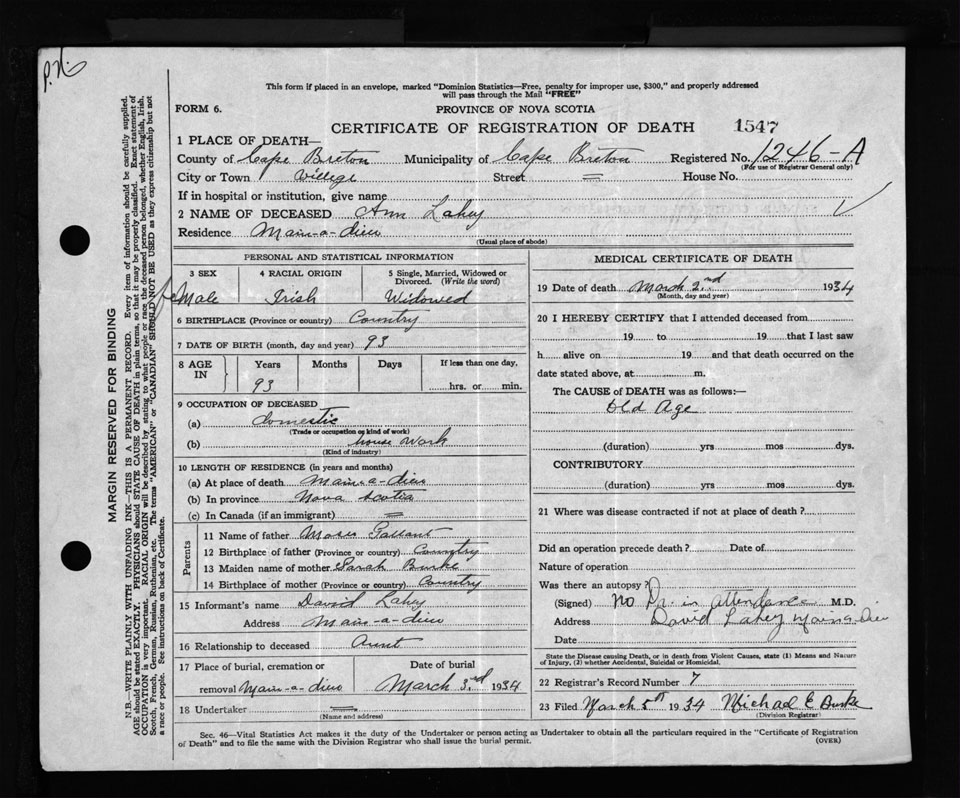 P.N.
This form if placed in an envelope, marked "Dominion Statistics—Free, penalty for improper use, $300," and properly addressed
will pass through the Mail "FREE"
FORM 6.
PROVINCE OF NOVA SCOTIA
CERTIFICATE OF REGISTRATION OF DEATH 1547
1 PLACE OF DEATH—
County of Cape Breton Municipality of Cape Breton Registered No. 1246-A
(For use of Registrar General only)
City or Town Villege Street = House No.
If in hospital or institution, give name
2 NAME OF DECEASED Ann Lahey
Residence Main-a-dieu
(Usual place of abode)
PERSONAL AND STATISTICAL INFORMATION
3 SEX 4 RACIAL ORIGIN 5 Single, Married, Widowed or Divorced. (Write the word)
feMale Irish Widowed
6 BIRTHPLACE (Province or country) Country
7 DATE OF BIRTH (month, day and year) 93
8 AGE IN Years Months Days If less than one day,
93 hrs. or min.
9 OCCUPATION OF DECEASED
(a) domestic
(Trade or occupation or kind of work)
(b) house work
(Kind of industry)
10 LENGTH OF RESIDENCE (in years and months)
(a) At place of death Main-a-dieu
(b) In province Nova Scotia
(c) In Canada (if an immigrant) =
Parents
11 Name of father Moses Gallant
12 Birthplace of father (Province or country) Country
13 Maiden name of mother Sarah Burke
14 Birthplace of mother (Province or country) Country
15 Informant's name David Lahey
Address Main-a-dieu
16 Relationship to deceased Aunt
17 Place of burial, cremation or removal Main-a-dieu Date of burial March 3rd 1934
18 Undertaker =
(Name and address)
MEDICAL CERTIFICATE OF DEATH
19 Date of death March 2nd 1934
(Month, day and year)
20 I HEREBY CERTIFY that I attended deceased from
19 to 19 that I last saw
h alive on 19 and that death occurred on the
date stated above, at m.
The CAUSE of DEATH was as follows:—
Old Age
(duration) yrs mos dys.
CONTRIBUTORY
(duration) yrs mos dys.
21 Where was disease contracted if not at place of death?
Did an operation precede death? Date of
Nature of operation
Was there an autopsy?
(Signed) No Dr. in attendance M.D.
Address David Lahey Main-a-Dieu
Date
State the Disease causing Death, or in death from Violent Causes, state (1) Means and Nature
of Injury, (2) whether Accidental, Suicidal or Homicidal.
22 Registrar's Record Number 7
23 Filed March 5th 1934 Michael E Burke
(Division Registrar)
Sec. 46—Vital Statistics Act makes it the duty of the Undertaker or person acting as Undertaker to obtain all the particulars required in the "Certificate of Registration
of Death" and to file the same with the Division Registrar who shall issue the burial permit. (OVER)
MARGIN RESERVED FOR BINDING
N.B.—WRITE PLAINLY WITH UNFADING INK—THIS IS A PERMANENT RECORD. Every item of information should be carefully supplied.
AGE should be stated EXACTLY. PHYSICIANS should STATE CAUSE OF DEATH in plain terms, so that it may be properly classified. Exact statement of
OCCUPATION is very important. RACIAL ORIGIN will be described by stating to what people or race the deceased person belonged, whether English, Irish,
Scotch, French, German, Russian, Ruthenian, etc. The terms "AMERICAN" or "CANADIAN" SHOULD NOT BE USED as they express citizenship but not
a race or people. See instructions on back of Certificate.